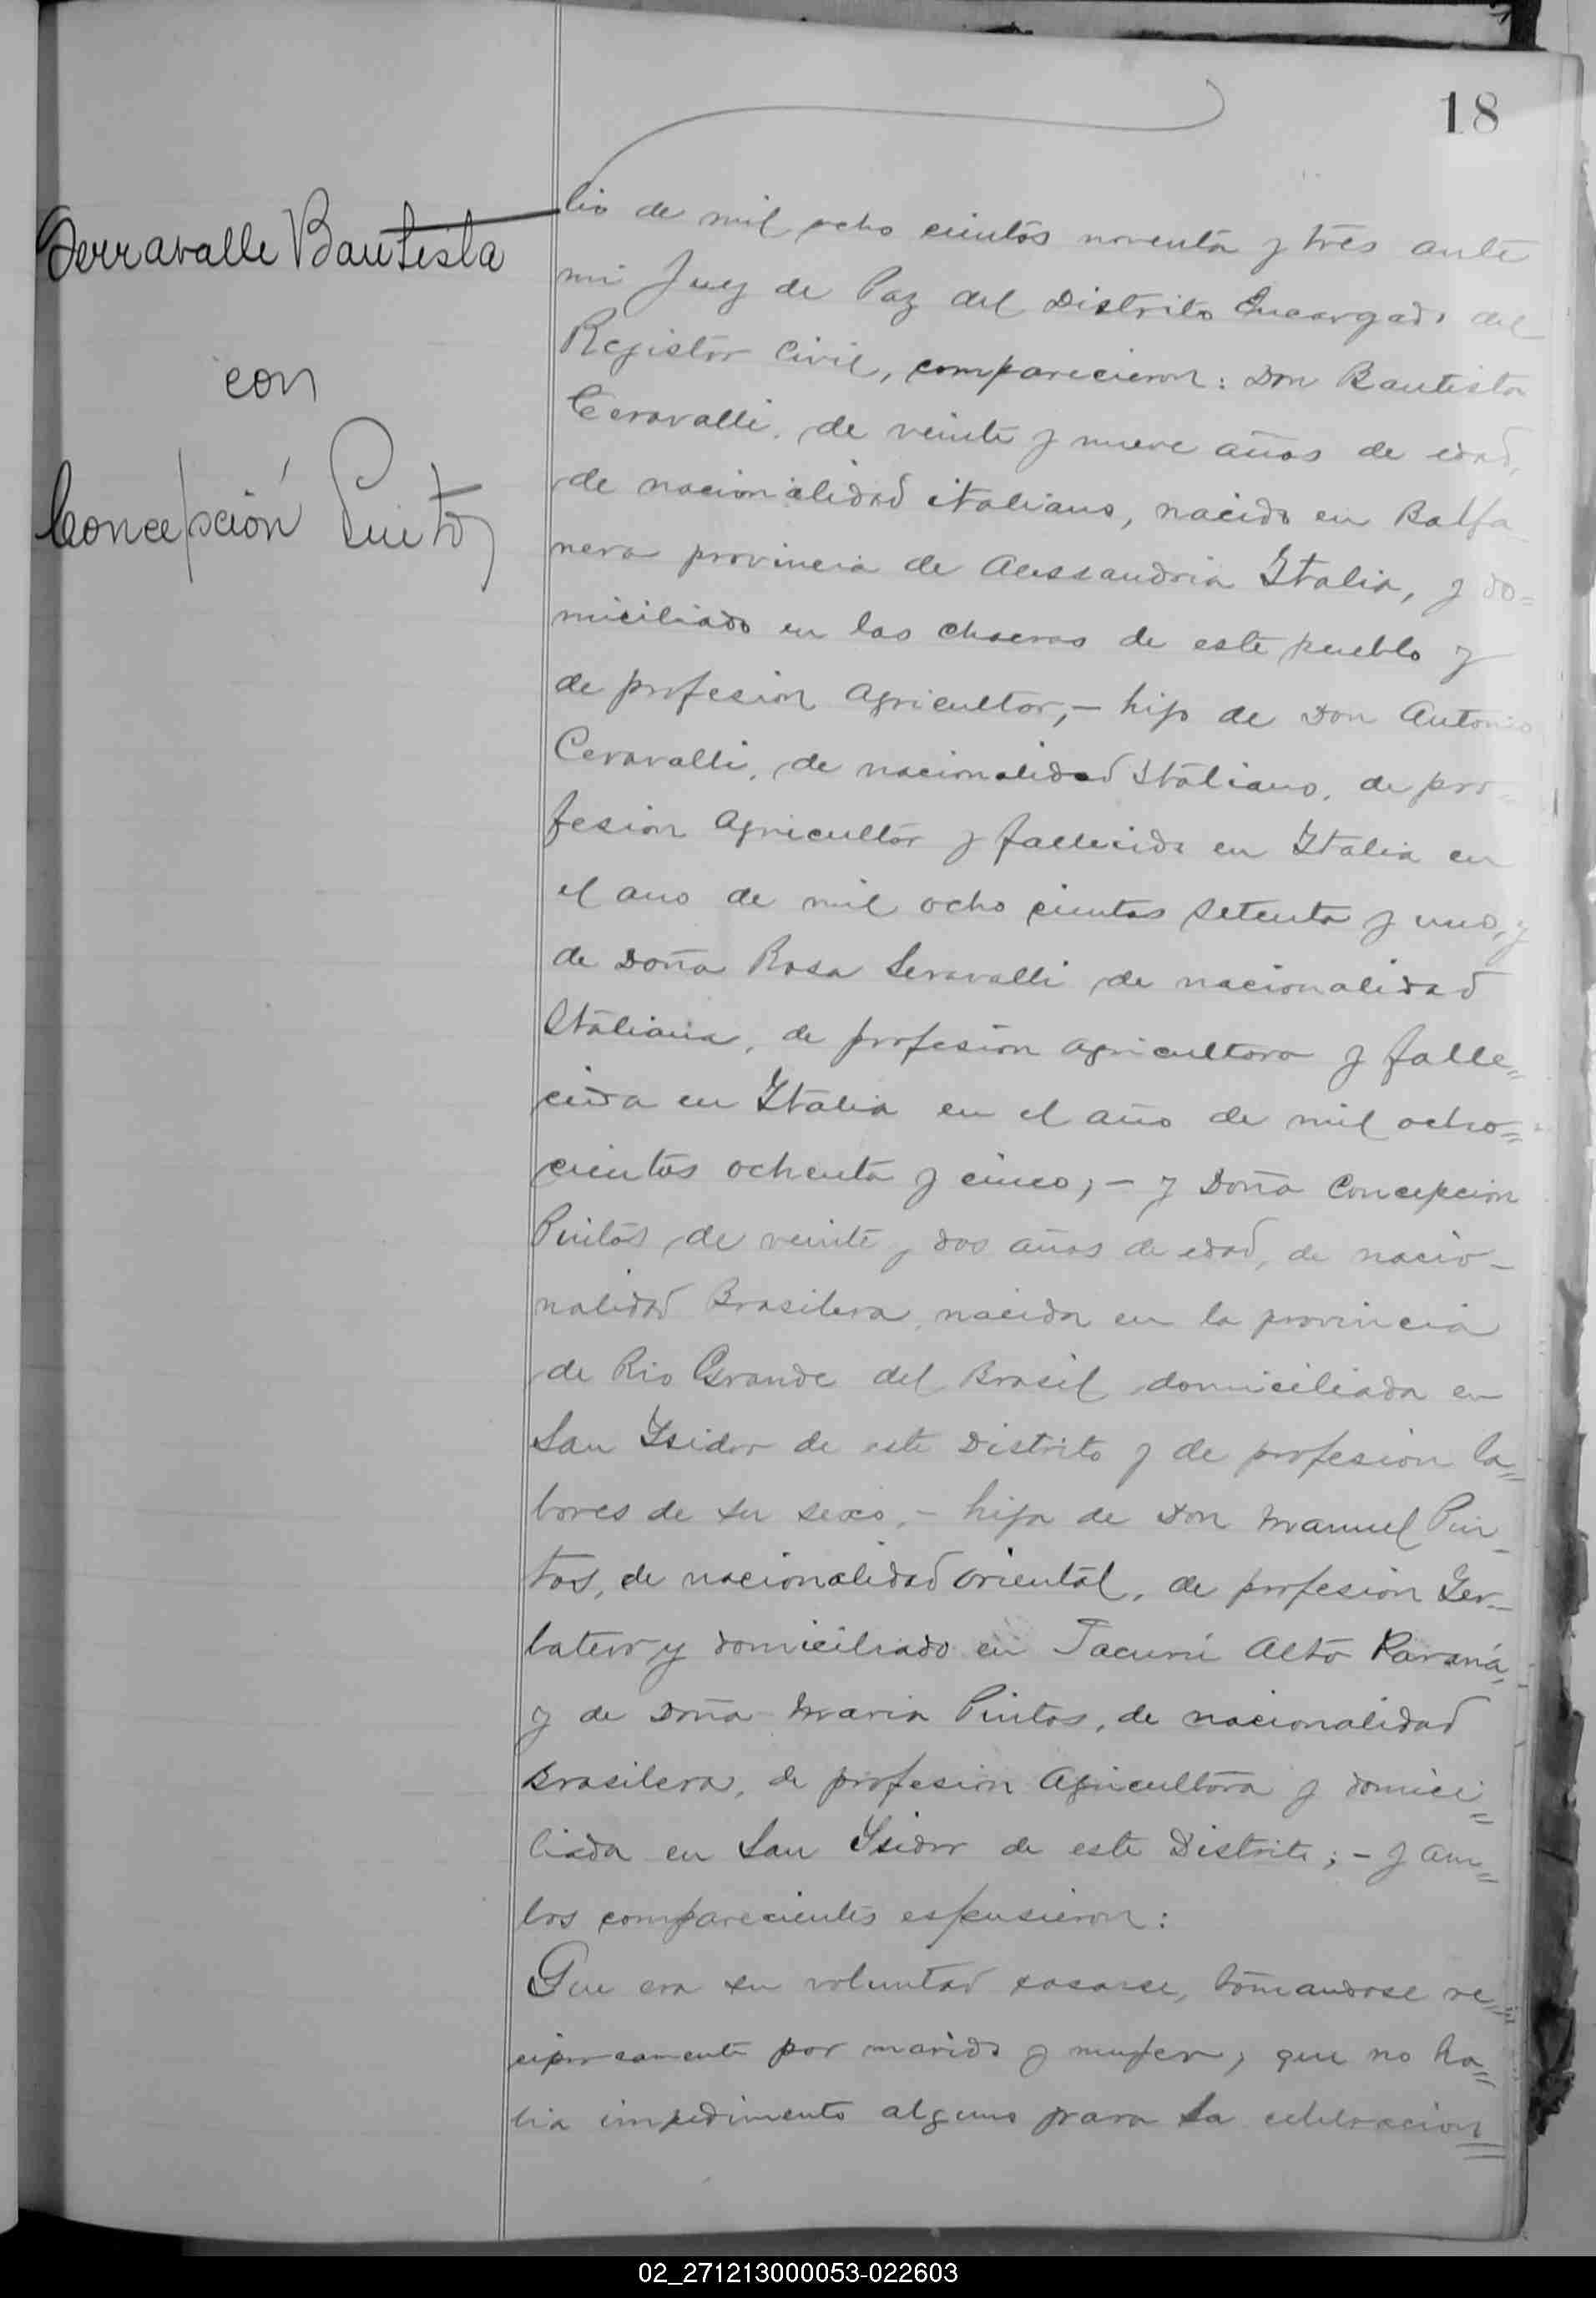 18
Serravalle Bautista
con
Concepción Puintos
lio de mil ocho cientos noventa y tres ante
mi Juez de Paz del Distrito Encargado del
Registro Civil, comparecieron: Don Bautista
Ceravalli, de veinte y nueve años de edad,
de nacionalidad italiano, nacido en Balfa
nera provincia de Alessandria Italia, y do=
miciliado en las chacras de este pueblo y
de profesion agricultor,- hijo de Don Antonio
Ceravalli, de nacionalidad Italiano, de pro=
fesion agricultor y fallecido en Italia en
el ano de mil ocho cientos setenta y uno, y
de Doña Rosa Seravalli de nacionalidad
Italiana, de profesion agricultora y falle=
cida en Italia en el año de mil ocho=
cientos ochenta y cinco;- y Doña Concepcion
Pintos de veinte y dos años de edad, de nacio-
nalidad Brasilera, nacida en la provincia
de Rio Grande del Brasil domiciliada en
San Ysidro de este Distrito y de profesion la=
bores de su sexo,- hija de Don Manuel Pin-
tos, de nacionalidad oriental, de profesion Yer-
batero y domiciliado en Tacurú Alto Paraná,
y de Doña Maria Pintos, de nacionalidad
Brasilera, de profesion Agricultora y domici=
liada en San Ysidro de este Distrito;- y am=
bos comparecientes espusieron:
Que era su voluntad casarse, tomandose re=
ciprocamente por marido y mujer, que no ha=
bia impedimento alguno para la celebracion
02_271213000053-022603